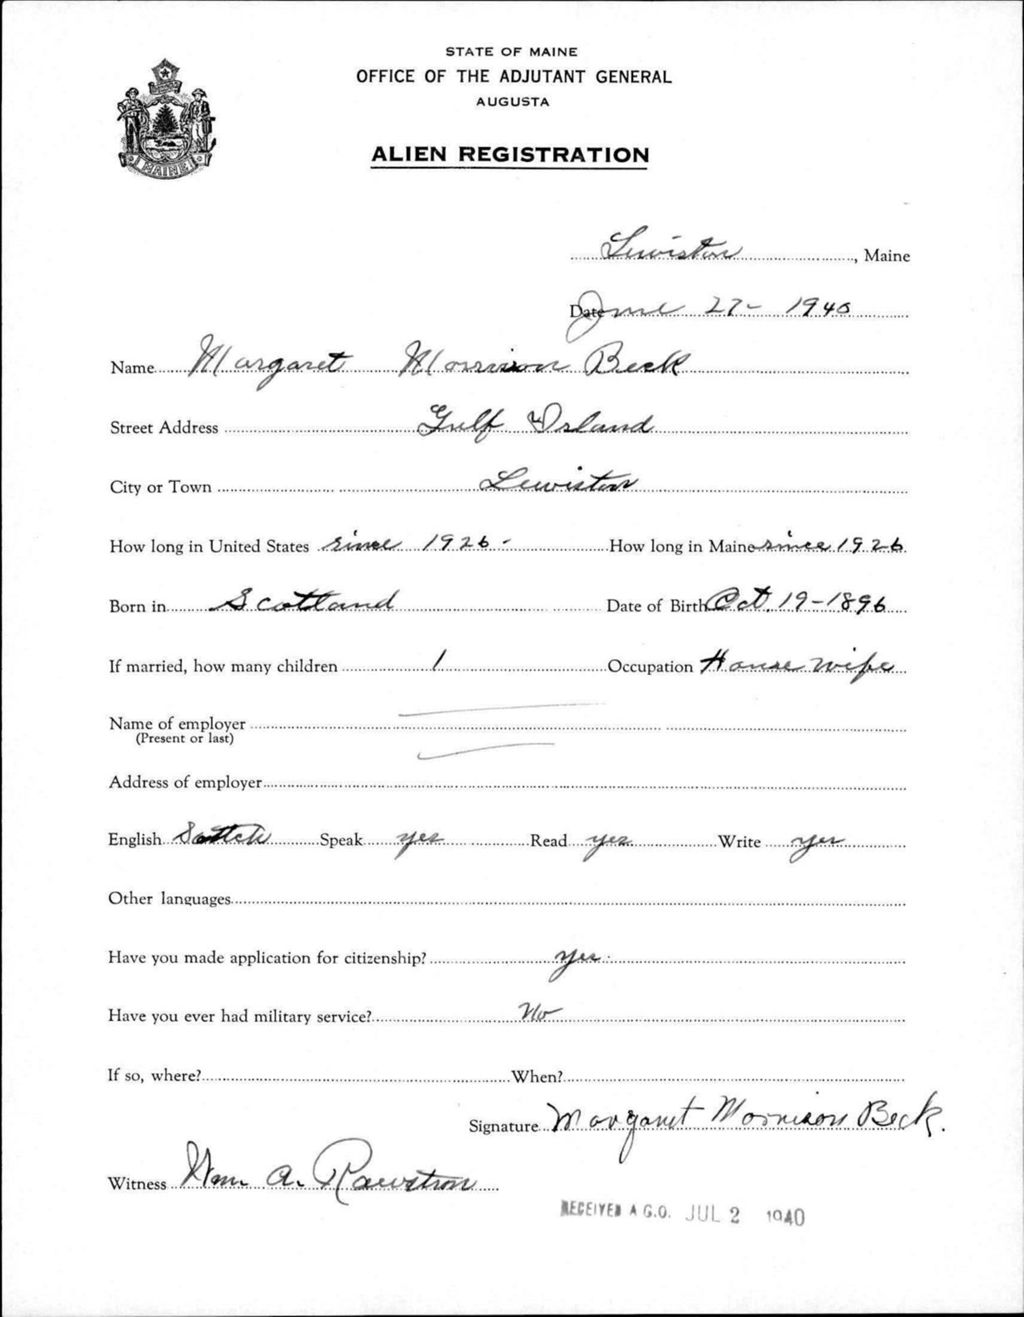 STATE OF MAINE
OFFICE OF THE ADJUTANT GENERAL
AUGUSTA
ALIEN REGISTRATION
MAINE
Lewiston, Maine
Date June 27- 1940
Name Margaret Morrison Beck
Street Address Gulf Island
City or Town Lewiston
How long in United States since 1926- How long in Maine since 1926
Born in Scotland Date of Birth Oct. 19-1896
If married, how many children 1 Occupation House wife
Name of employer
(Present or last)
Address of employer
English Scotch Speak yes Read yes Write yes
Other languages
Have you made application for citizenship? yes
Have you ever had military service? No
If so, where? When?
Signature Margaret Morrison Beck.
Witness Wm. A. Rawstron
RECEIVED A.G.O. JUL 2 1940